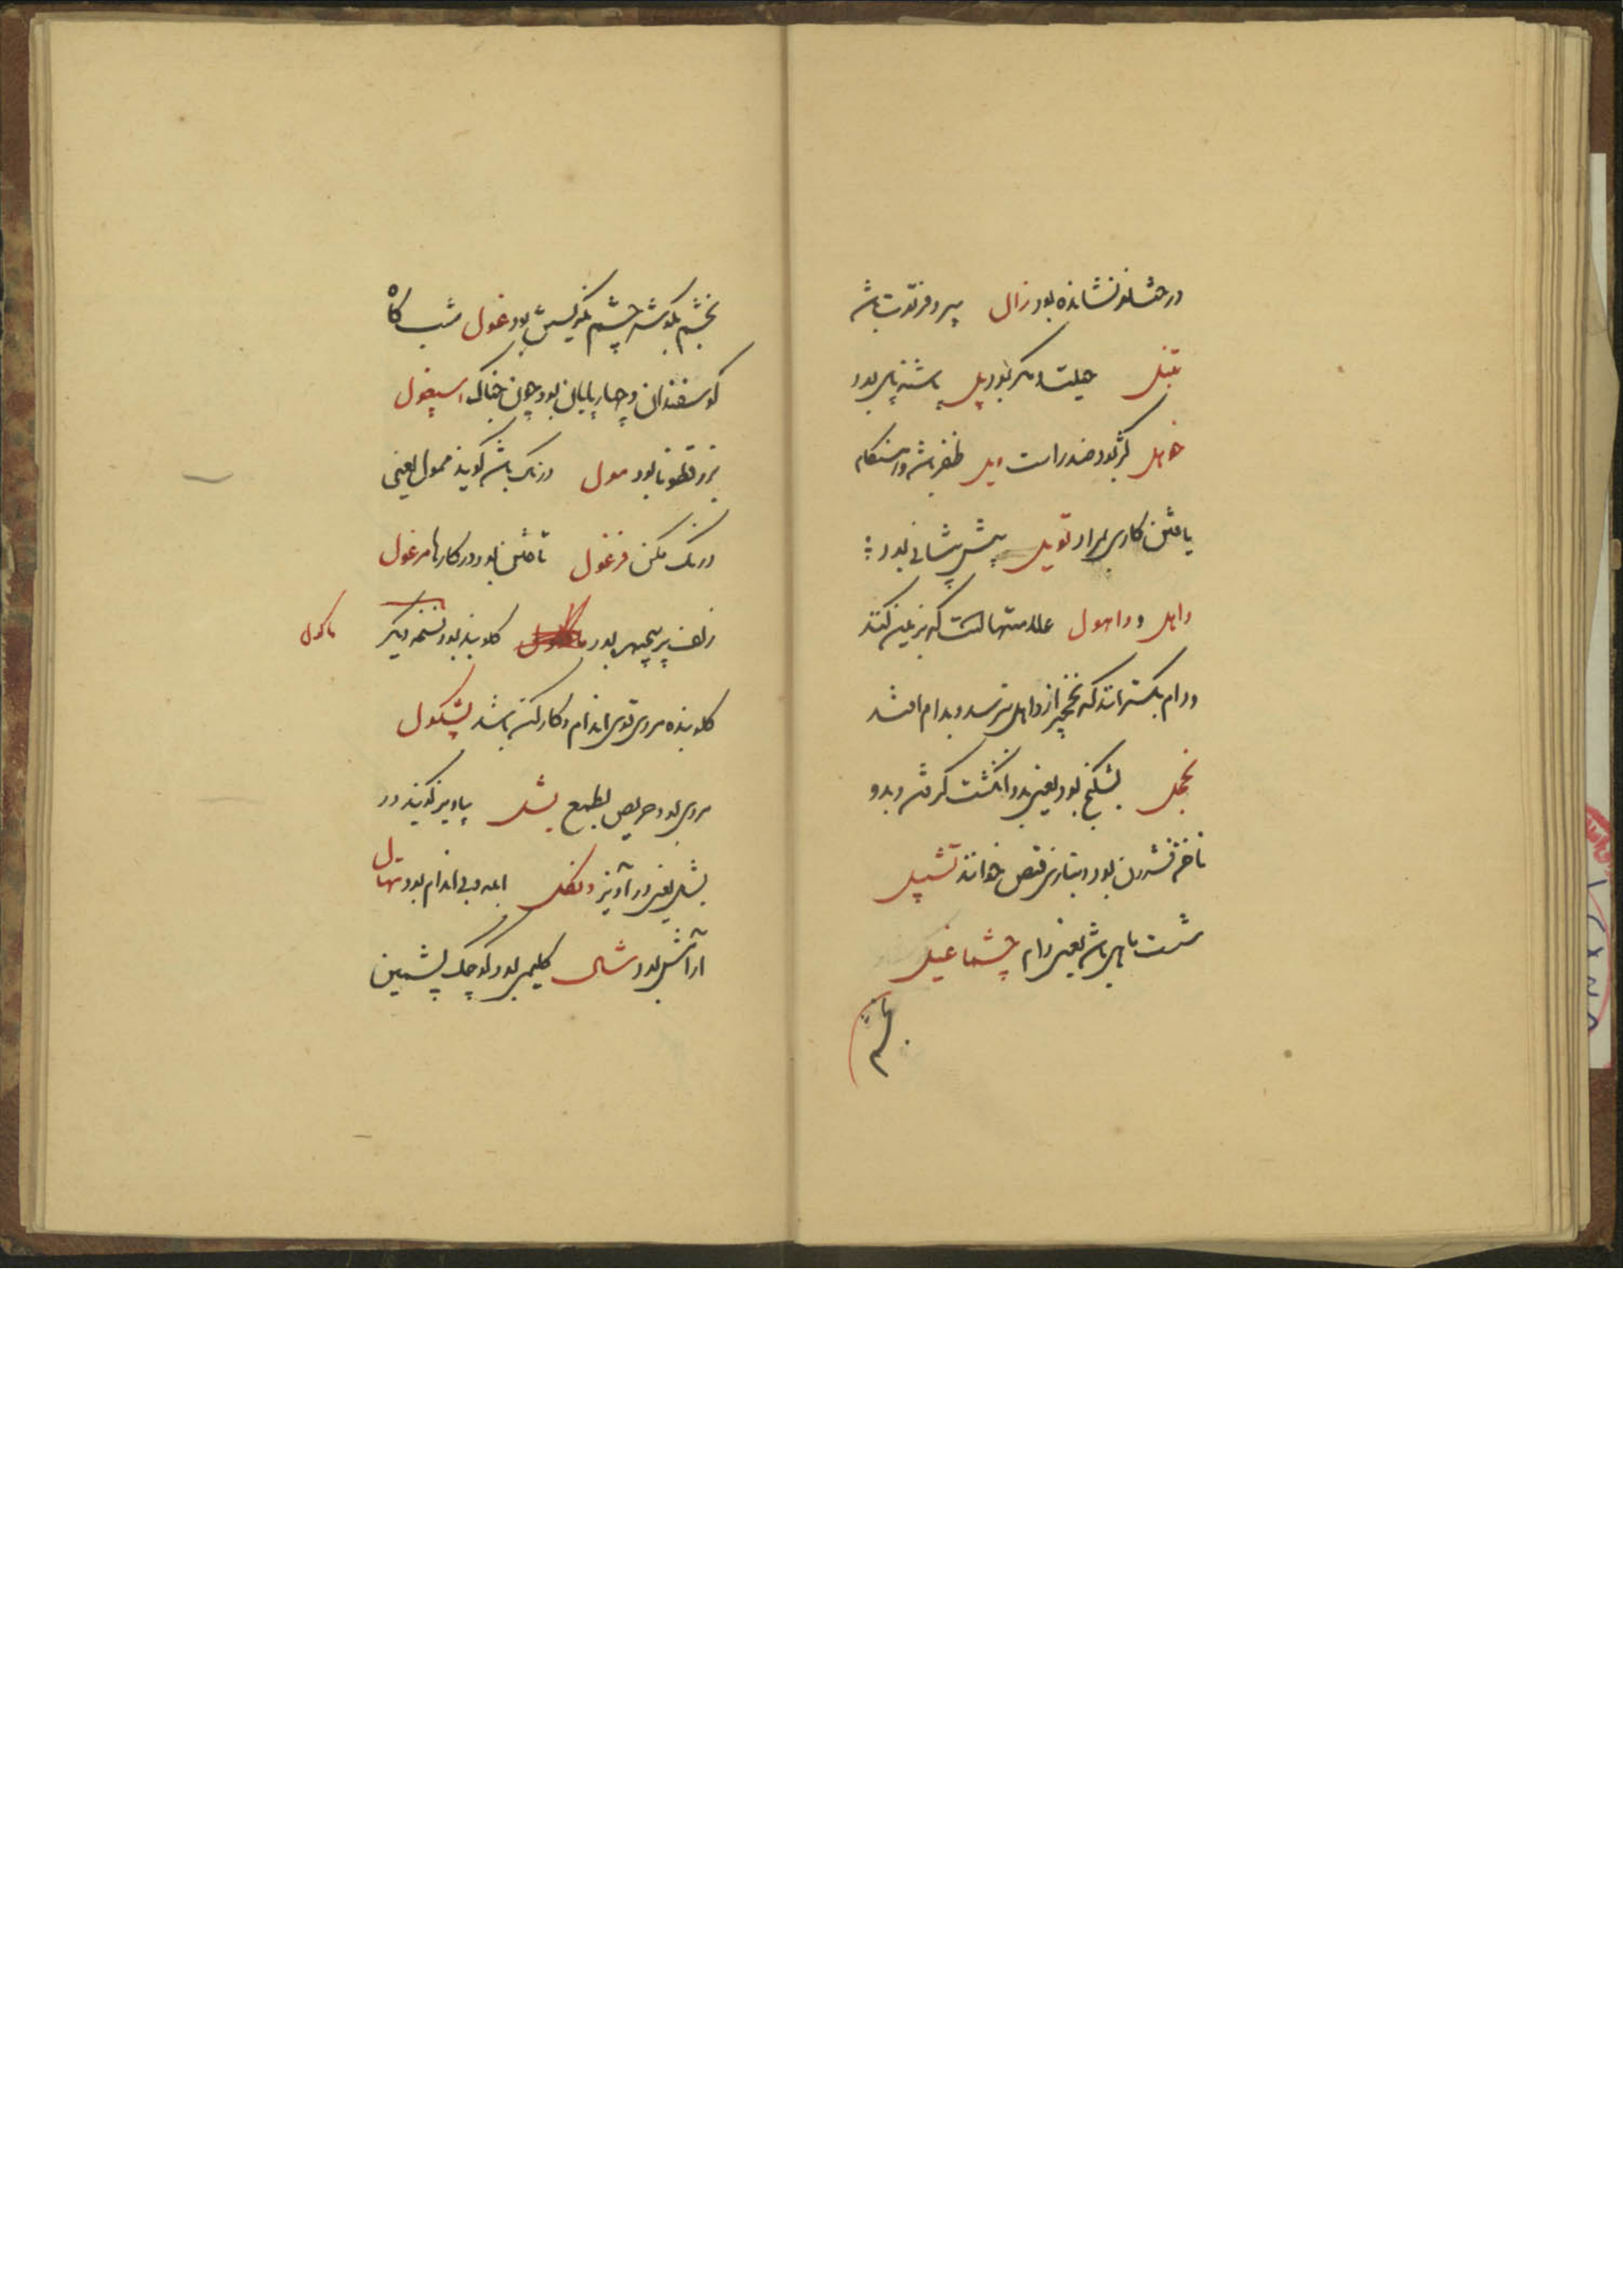 درختی نو نشانده بود زال پیر و فرتوت باشد
تنبل حیلت و مکر بود پل پاشنه پای بود
خوهل کژ بود ضد راست ویل ظفر باشد و هنگام
یافتن کاری بمراد تویل پیش پیشانی بود
داهل و داهول علامتهاست که بر زمین کنند
و دام بگسترانند که نخچیر از داهل بترسد و بدام افتد
نخجل نشکنج بود یعنی بدو انگشت گرفتن و بدو
ناخن فشردن بود و بتازی قنص خوانند تشپیل
شست ماهی باشد یعنی دام چشماغیل
بخشم
بخشم بگوشه چشم نگریستن بود غول شب گاه
گوسفندان و چهارپایان بود چون خباک اسپغول
بزر قطونا بود مول درنگ باشد گویند ممول یعنی
درنگ مکن فرغول تاختن بود در کارها مرغول
زلف پرپیچ بود کلوبنده بود نسخه دیگر
ماکول
کلوبنده مردی قوی اندام و کارکن باشد پشکول
مردی بود حریص بطمع بشل بیاویز گویند در
بشل یعنی درآویز دنگل ابله و بی اندام بود تهال
آرایش بود شال گلیمی بود کوچک پشمین